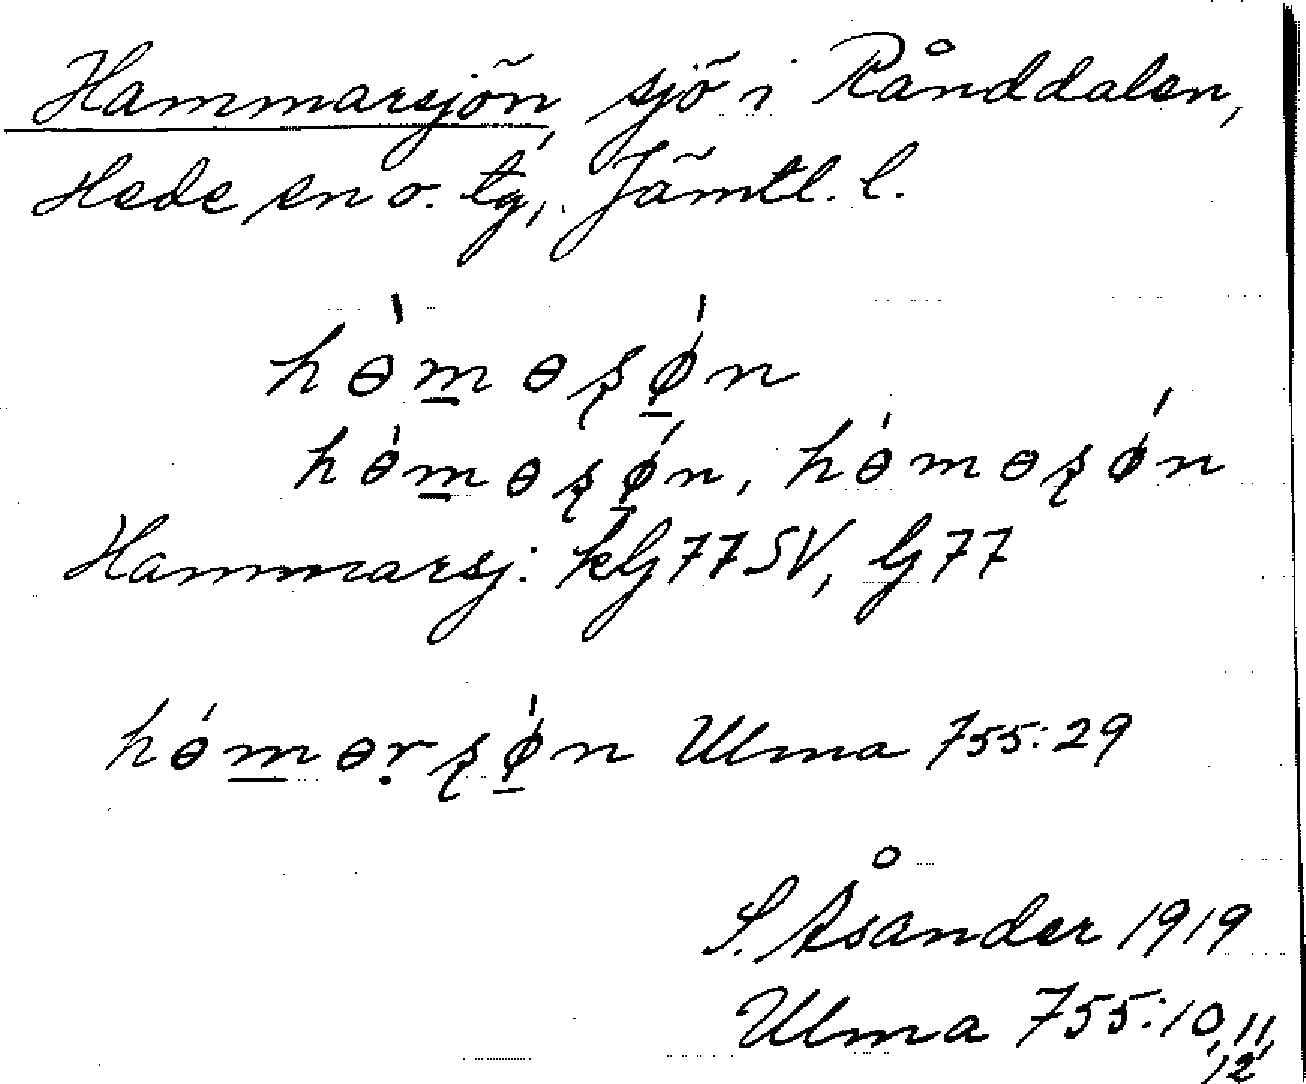 Hammarsjön, sjö i Rånddalen,
Hede sn o. tg, Jämtl. l.
hɵ̀m̲ɵʂǿ̲n
hɵ̀m̲ɵʂǿ̲n, hɵ̀mɵʂǿn
Hammarsj: kG77SV, G77
hɵ́m̲ɵṛʂø̲̀n Ulma 755:29
S. Åsander 1919
Ulma 755:10, 11,
12